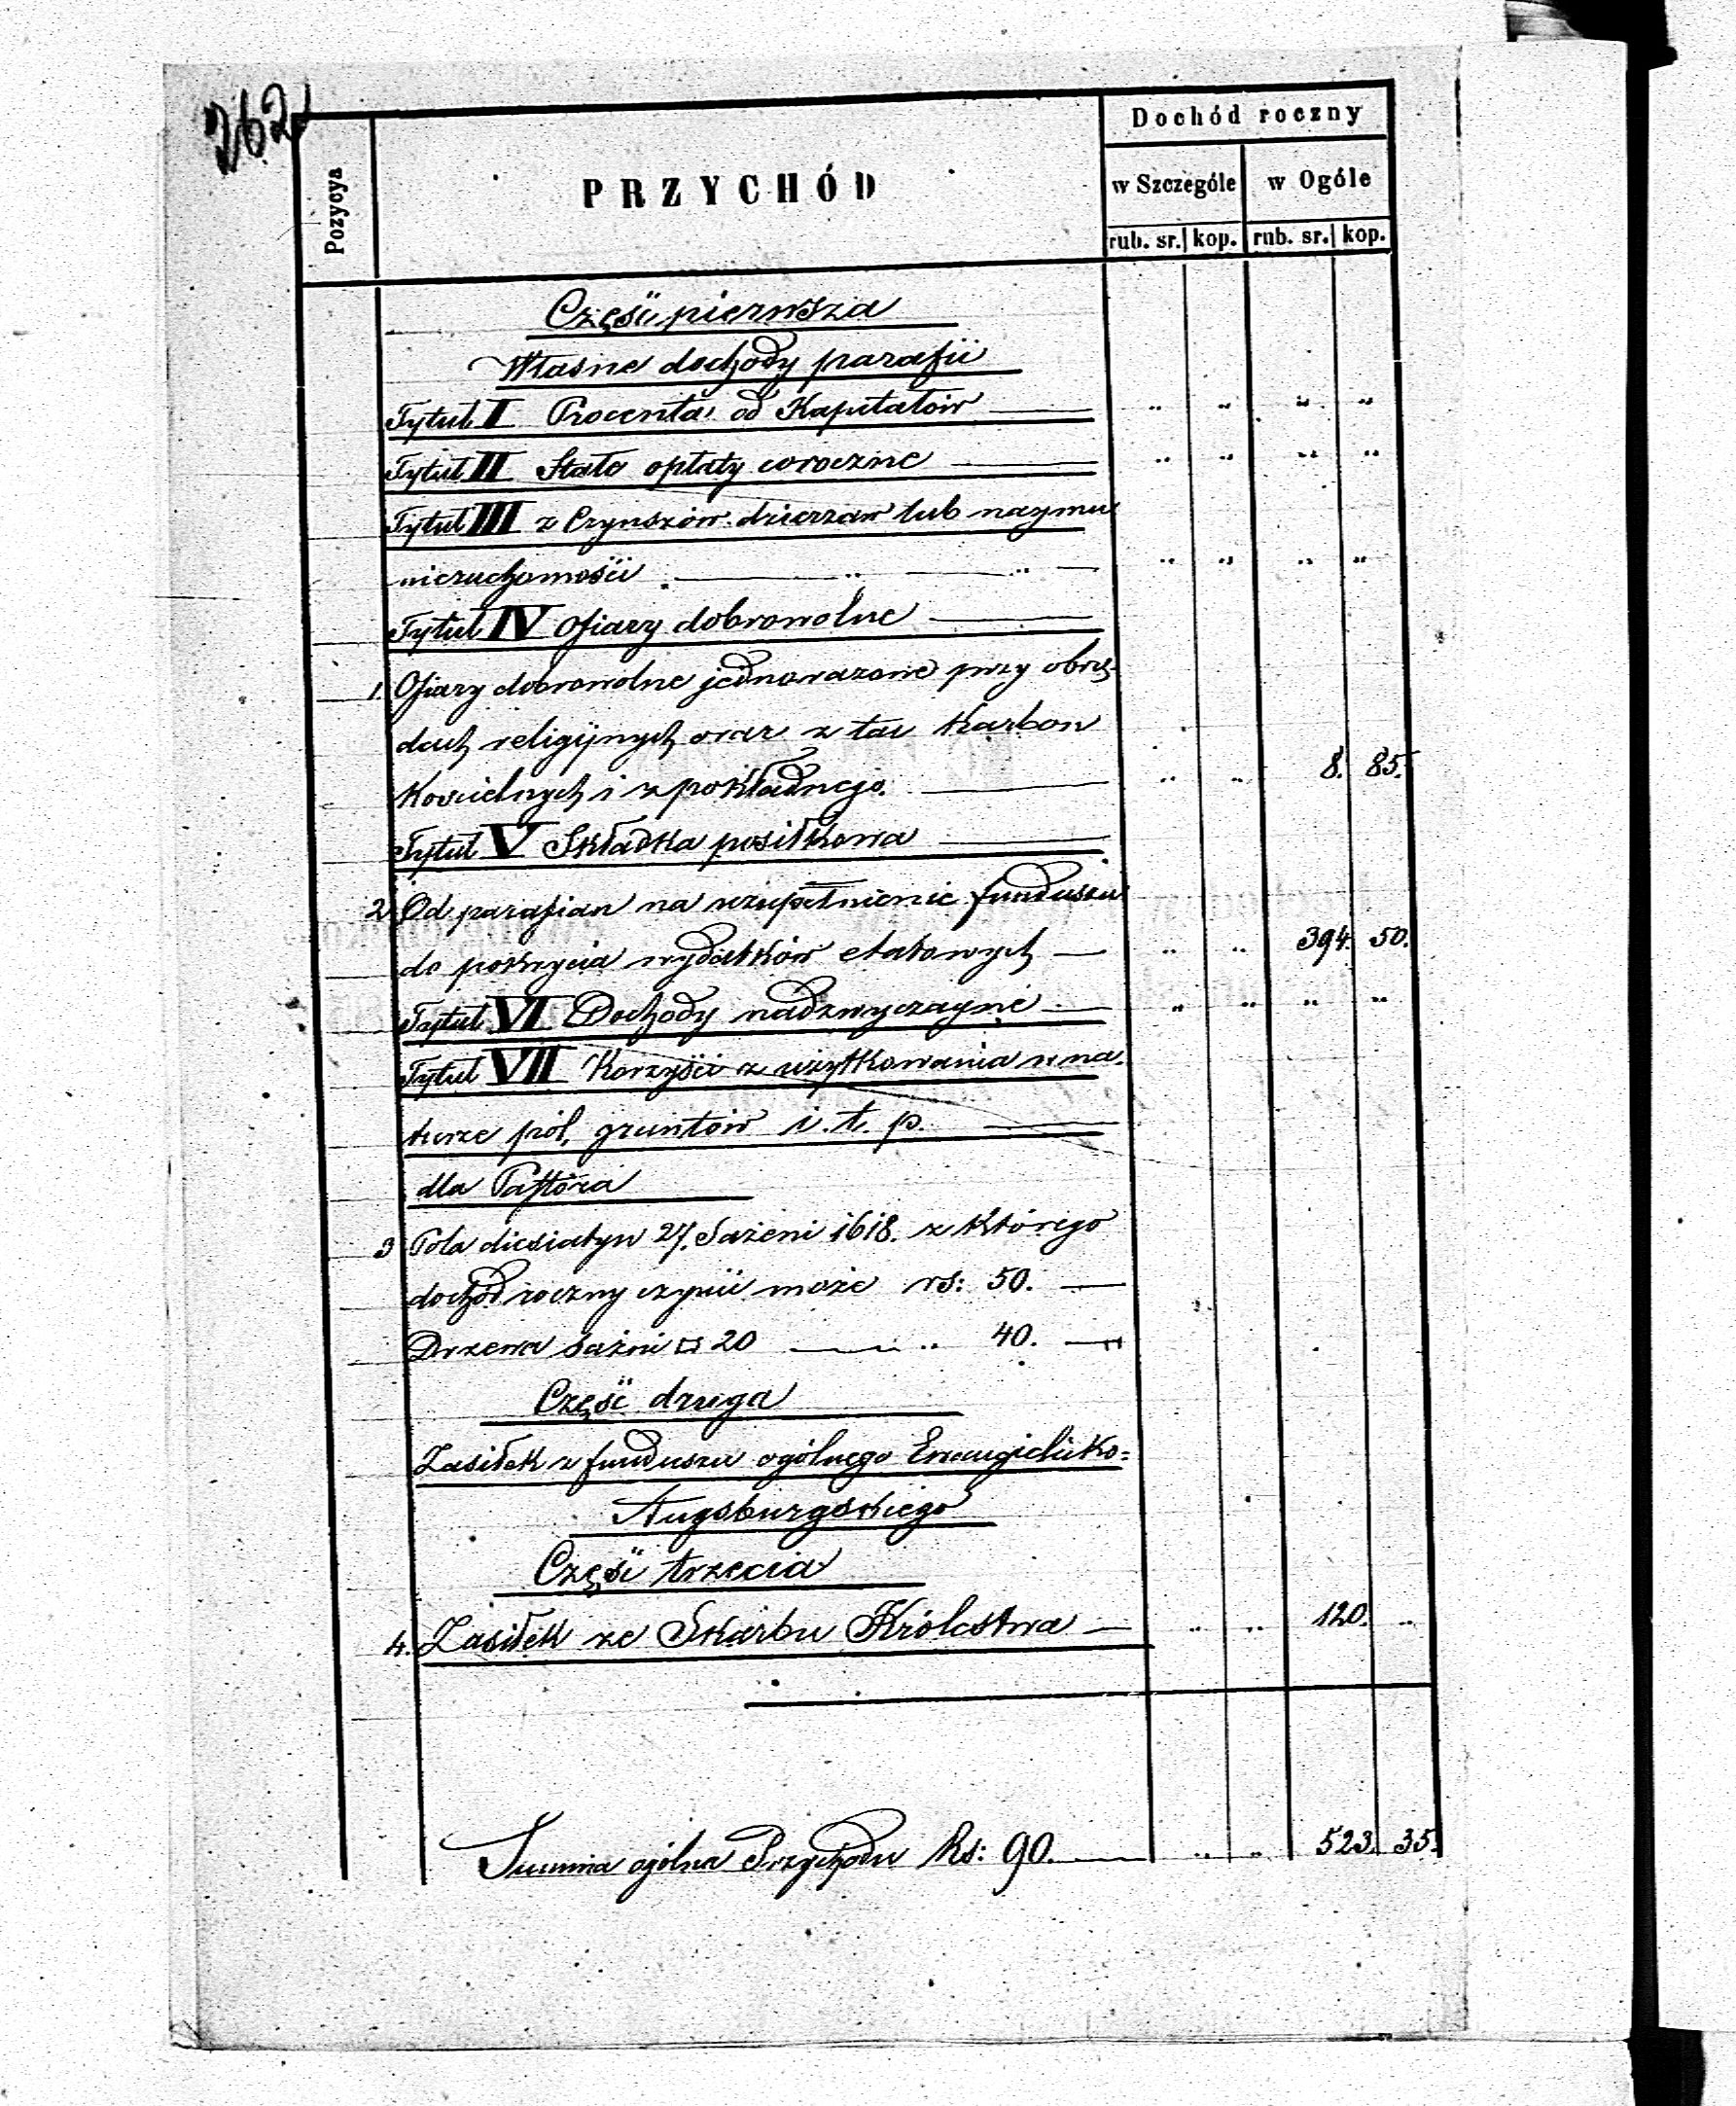 262
Dochód roczny
Pozycya
PRZYCHÓD
w Szczególe w Ogóle
rub. sr. kop. rub. sr. kop.
Część pierwsza
Własne dochody parafii
Tytuł I Procenta od Kapitałów " " " "
Tytuł II Stałe opłaty coroczne " " " "
Tytuł III z Czynszów dzierzaw lub naymu
nieruchomości " " " "
Tytuł IV Ofiary dobrowolne
1. Ofiary dobrowolne jednorazowe przy obrzę-
dach religijnych oraz z tac Karbon
Kościelnych i z pokładnego. " " 8. 85.
Tytuł V Składka posiłkowa
2 Od parafian na uzupełnienie funduszu
do pokrycia wydatków etatowych " " 394. 50.
Tytuł VI Dochody nadzwyczayne " " " "
Tytuł VII Korzyści z użytkowania w na-
turze pól, gruntów i. t. p.
dla Pastora
3 Pola diesiatyn 27. Sażeni 1618. z którego
dochód roczny czynić może rs: 50.
Drzewa sażni □ 20 " 40. "
Część druga
Zasiłek z funduszu ogólnego Ewangielicko-
Augsburgskiego
Część trzecia
4. Zasiłek ze Skarbu Królestwa " " 120. "
Summa ogólna Przychodu Rs: 90. " " 523. 35.